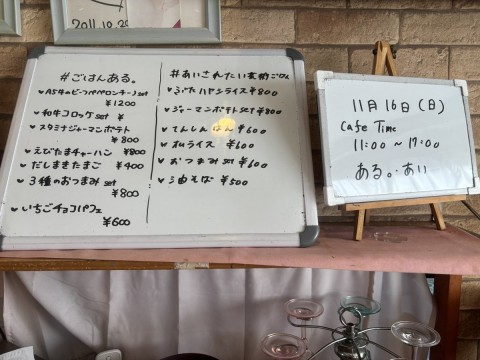 2011.10.20
#ごはんある。
♥A5牛のビーフペペロンチーノset
¥1200
♥和牛コロッケset ¥
♥スタミナジャーマンポテト
¥800
♥えびたまチャーハン ¥800
♥だしまきたまご ¥400
♥3種のおつまみset
¥800
♥いちごチョコパフェ
¥600
#あいされたい
♥ぶたハヤシライス¥800
♥ジャーマンポテトset¥800
♥てんしんはん¥600
♥オムライス ¥600
♥おつまみset ¥600
♥油そば ¥500
11月16日(日)
Cafe Time
11:00 ~ 17:00
ある。・あい